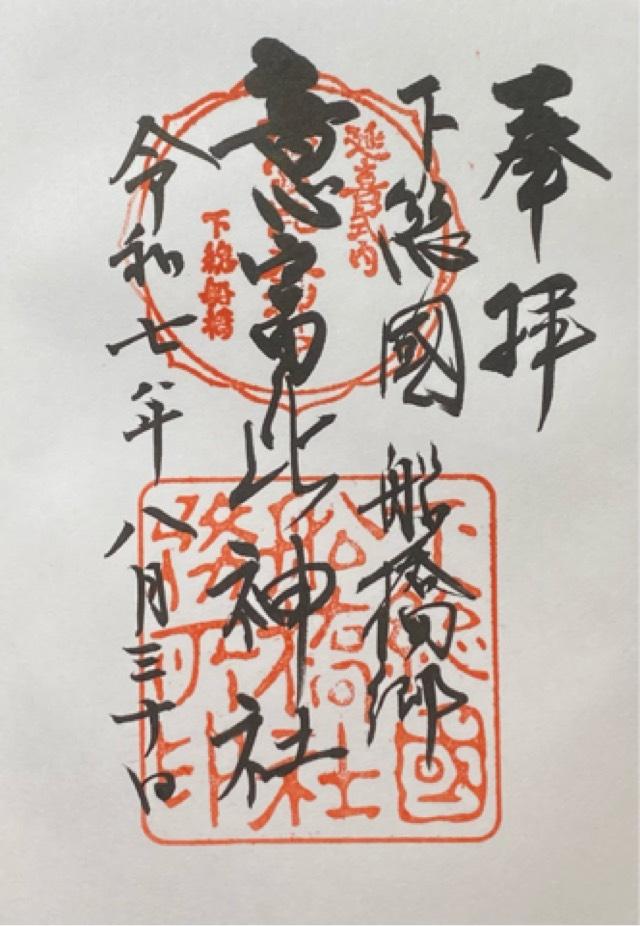 奉拝
下總國 船橋郷
意富比神社
令和七年八月三十日
延喜式内
下総船橋